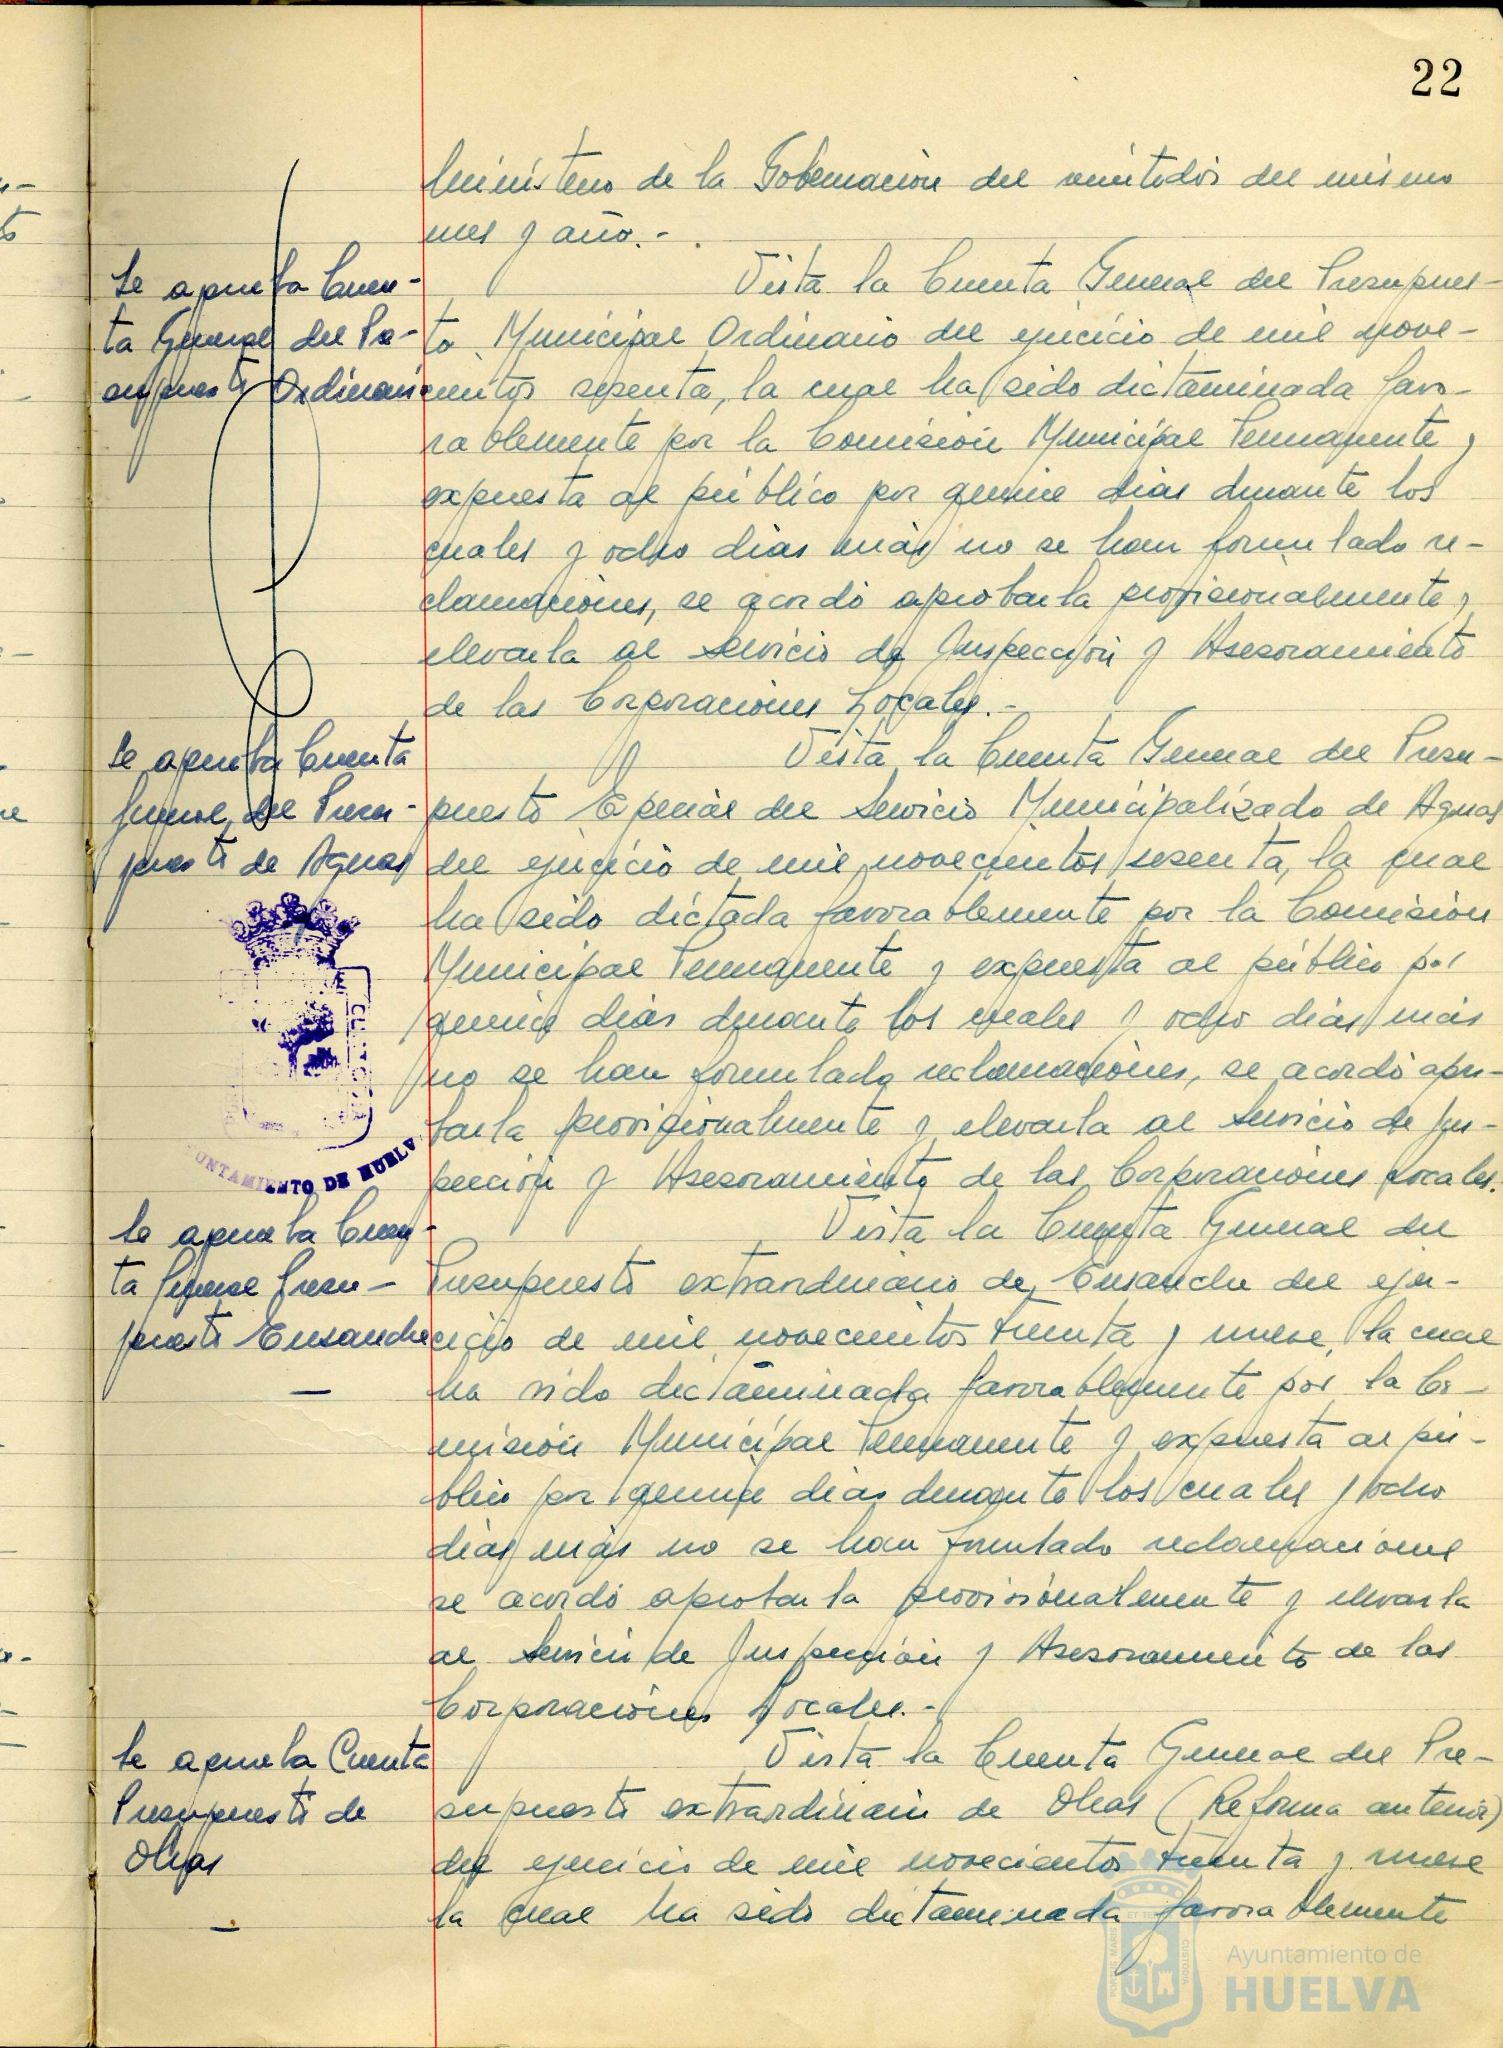 22
Ministerio de la Gobernación del veintidós del mismo
mes y año.-
Se aprueba Cuen-
ta General del Pre-
supuesto Ordinario
Vista la Cuenta General del Presupues-
to Municipal Ordinario del ejercicio de mil nove-
cientos sesenta, la cual ha sido dictaminada favo-
rablemente por la Comisión Municipal Permanente y
expuesta al público por quince días durante los
cuales y ocho días más no se han formulado re-
clamaciones, se acordó aprobarla provisionalmente y
elevarla al Servicio de Inspección y Asesoramiento
de las Corporaciones Locales.-
Se aprueba Cuenta
General del Presu-
puesto de Aguas
Vista la Cuenta General del Presu-
puesto Especial del Servicio Municipalizado de Aguas
del ejercicio de mil novecientos sesenta, la cual
ha sido dictada favorablemente por la Comisión
Municipal Permanente y expuesta al público por
quince días durante los cuales y ocho días más
no se han formulado reclamaciones, se acordó apro-
barla provisionalmente y elevarla al Servicio de Ins-
pección y Asesoramiento de las Corporaciones Locales.
UNTAMIENTO DE HUELV
Se aprueba Cuen-
ta General Presu-
puesto Ensanche
Vista la Cuenta General del
Presupuesto extraordinario de Ensanche del ejer-
cicio de mil novecientos treinta y nueve, la cual
ha sido dictaminada favorablemente por la Co-
misión Municipal Permanente y expuesta al pú-
blico por quince días durante los cuales y ocho
días más no se han formulado reclamaciones
se acordó aprobarla provisionalmente y elevarla
al Servicio de Inspección y Asesoramiento de las
Corporaciones Locales.-
Se aprueba Cuenta
Presupuesto de
Obras
Vista la Cuenta General del Pre-
supuesto extraordinario de Obras (Reforma anterior)
del ejercicio de mil novecientos treinta y nueve
la cual ha sido dictaminada favorablemente
Ayuntamiento de
HUELVA